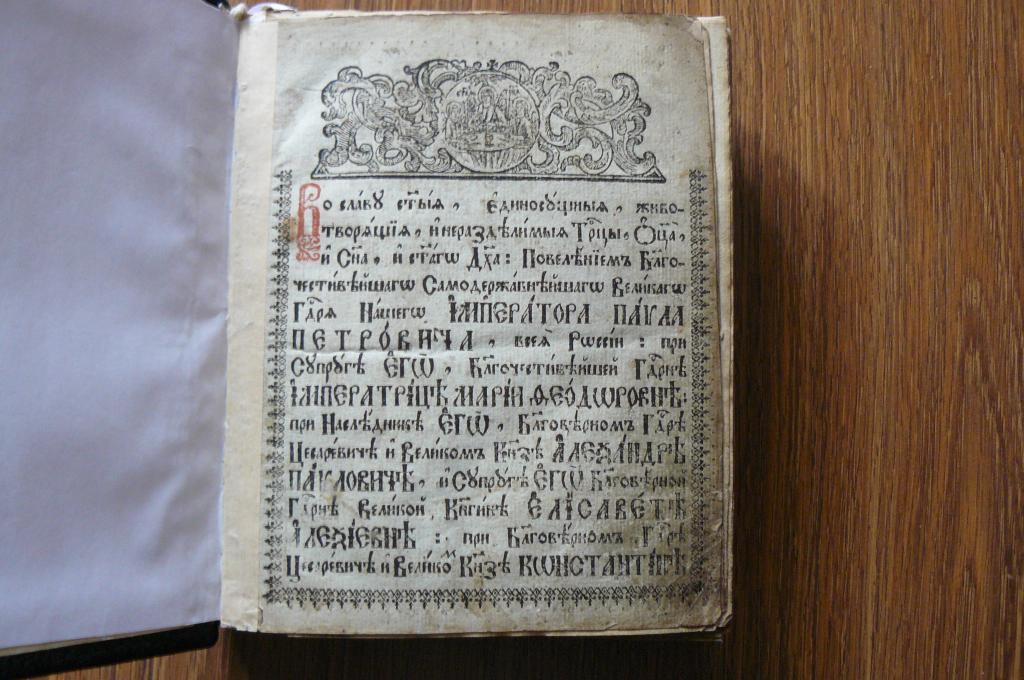 Во сла́вꙋ ст҃ы́ѧ , Є҆диносꙋ́щныѧ , живо-
творѧ́щїѧ , и҆ нераздѣли́мыѧ Трⷪ҇цы , Ѻ҆ц҃а̀ ,
и҆ Сн҃а , и҆ ст҃а́гѡ Дх҃а : Повелѣ́нїемъ Бл҃го-
чести́вѣйшагѡ Самодержа́внѣйшагѡ Вели́кагѡ
Гдⷭ҇рѧ На́шегѡ І҆МПЕРА́ТОРА ПА́ѴЛА
ПЕТРО́ВИЧА , всеѧ̀ Рѡссі́и : при
Сꙋпрꙋ́гѣ Є҆ГѠ̀ , Бл҃гочести́вѣйшей Гдⷭ҇рнѣ
І҆МПЕРАТРИ́ЦѢ МАРІ́И ѲЕО́ДѠРОВНѢ :
при Наслѣ́дникѣ Є҆ГѠ̀ , Бл҃говѣ́рномъ Гдⷭ҇рѣ
Цесаре́вичѣ и҆ Вели́комъ Кн҃зѣ А҆ЛЕѮА́НДРѢ
ПА́ѴЛОВИЧѢ , и҆ Сꙋпрꙋ́гѣ Є҆ГѠ̀ Бл҃говѣ́рной
Гдⷭ҇рнѣ Вели́кой Кн҃ги́нѣ Є҆ЛІСАВЕ́ТѢ
А҆ЛЕѮІ́ЕВНѢ : при Бл҃говѣ́рномъ Гдⷭ҇рѣ
Цесаре́вичѣ и҆ Вели́комъ Кн҃зѣ КѠНСТАНТІ́НѢ